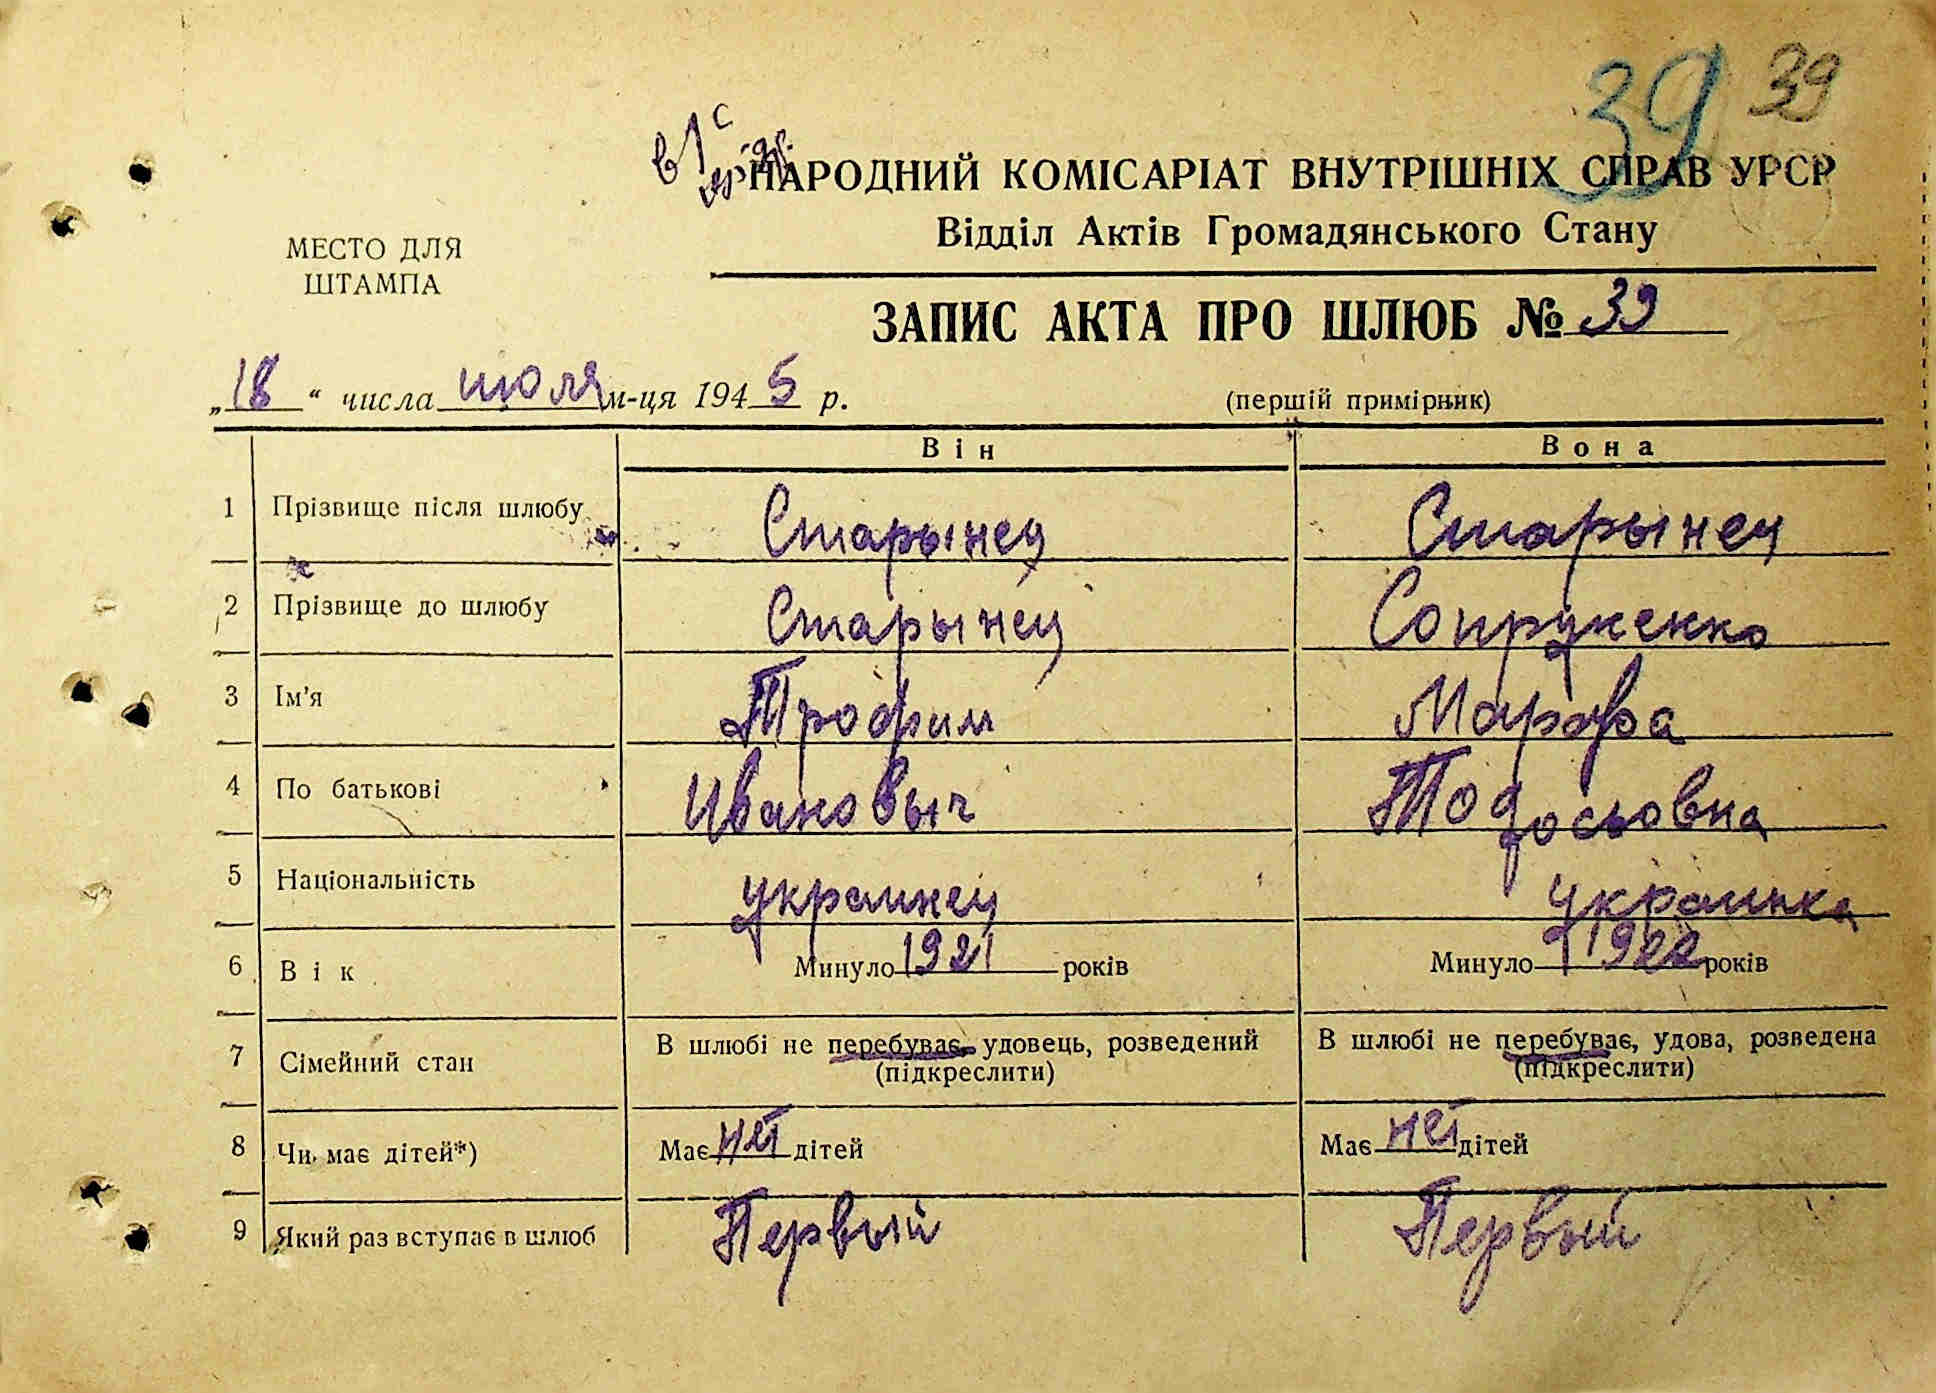 39 39
НАРОДНИЙ КОМІСАРІАТ ВНУТРІШНІХ СПРАВ УРСР
Відділ Актів Громадянського Стану
МЕСТО ДЛЯ
ШТАМПА
ЗАПИС АКТА ПРО ШЛЮБ № 39
„18“ числа июля м-ця 1945 р.
(перший примірник)
Він Вона
1 Прізвище після шлюбу Старынец Старынец
2 Прізвище до шлюбу Старынец Сопрукенко
3 Ім'я Трофим Марфа
4 По батькові Ивановыч Тодосьовна
5 Національність украинец украинка
6 Вік Минуло 1921 років Минуло 1922 років
7 Сімейний стан В шлюбі не перебуває, удовець, розведений В шлюбі не перебуває, удова, розведена
(підкреслити) (підкреслити)
8 Чи має дітей*) Має нет дітей Має нет дітей
9 Який раз вступає в шлюб Первый Первый